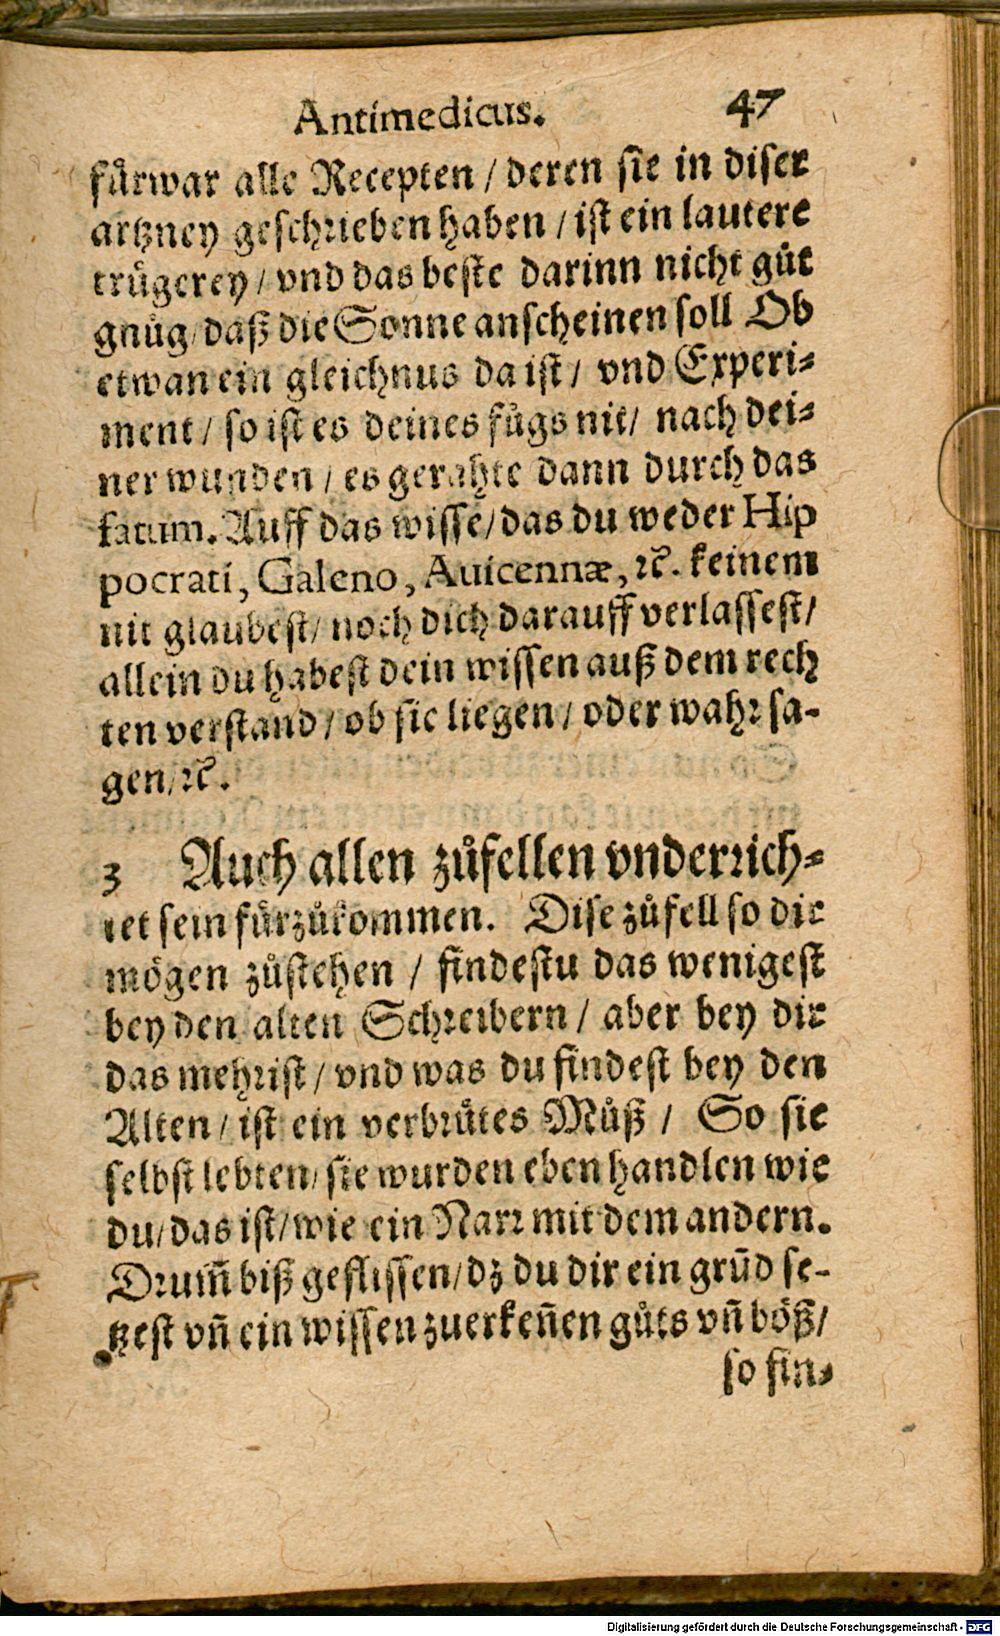 Antimedicus. 47
fuͤrwar alle Recepten / deren sie in diser
artzney geschrieben haben / ist ein lautere
truͤgerey / vnd das beste darinn nicht guͤt
gnuͤg / daß die Sonne anscheinen soll Ob
etwan ein gleichnus da ist / vnd Experi-
ment / so ist es deines fuͤgs nit / nach dei-
ner wunden / es gerahte dann durch das
fatum. Auff das wisse / das du weder Hip
pocrati, Galeno, Auicennæ, ꝛc. keinem
nit glaubest / noch dich darauff verlassest /
allein du habest dein wissen auß dem rech
ten verstand / ob sie liegen / oder wahr sa-
gen / ꝛc.
3 Auch allen zuͦfellen vnderrich-
tet sein fuͤrzuͦkommen. Dise zuͦfell so dir
moͤgen zuͦstehen / findestu das wenigest
bey den alten Schreibern / aber bey dir
das mehr ist / vnd was du findest bey den
Alten / ist ein verbruͤtes Muͦß / So sie
selbst lebten / sie wurden eben handlen wie
du / das ist / wie ein Narr mit dem andern.
Drum̃ biß geflissen / dz du dir ein grũd se-
tzest vñ ein wissen zuerkeñen guͤts vñ boͤß /
so fin-
Digitalisierung gefördert durch die Deutsche Forschungsgemeinschaft - DFG